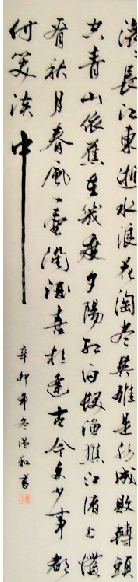 滚長江東逝水浪花淘尽英雄是非成敗轉頭
空青山依舊在幾度夕陽紅白髮漁樵江渚上慣
看秋月春風一壺濁酒喜相逢古今多少事都
付笑談中
辛卯年冬書